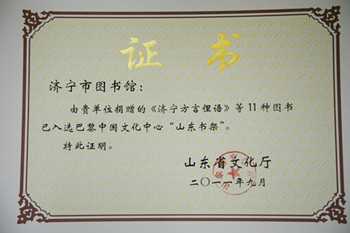 证书
济宁市图书馆：
由贵单位捐赠的《济宁方言俚语》等11种图书
已入选巴黎中国文化中心“山东书架”。
特此证明。
山东省文化厅
二〇一一年九月